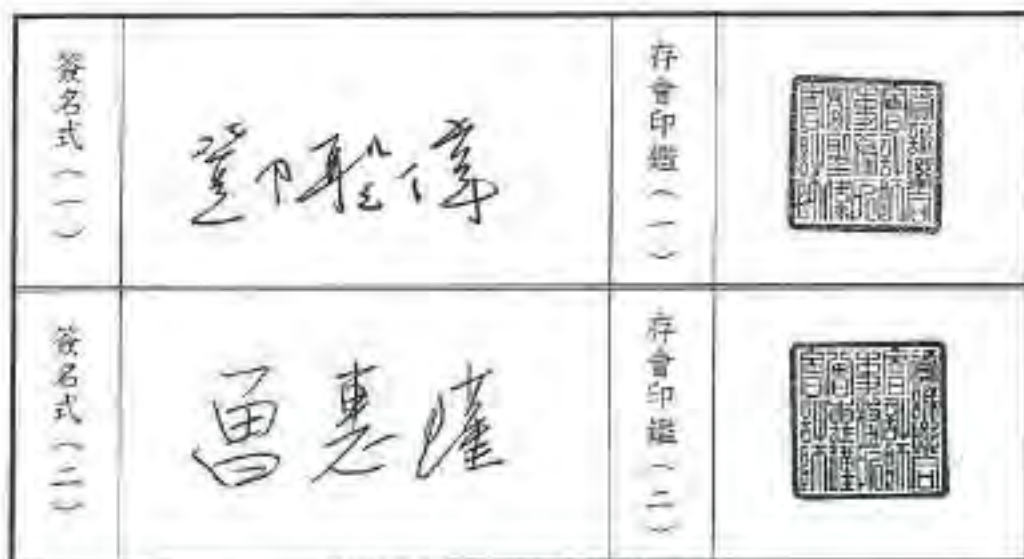 簽名式(一)
鄧聖偉
存會印鑑(一)
簽名式(二)
曾惠瑾
存會印鑑(二)